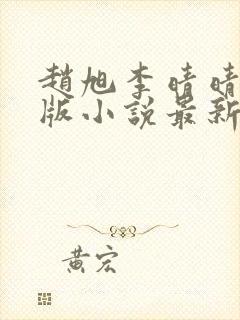 趙旭李晴晴
版小說最新
黃宏